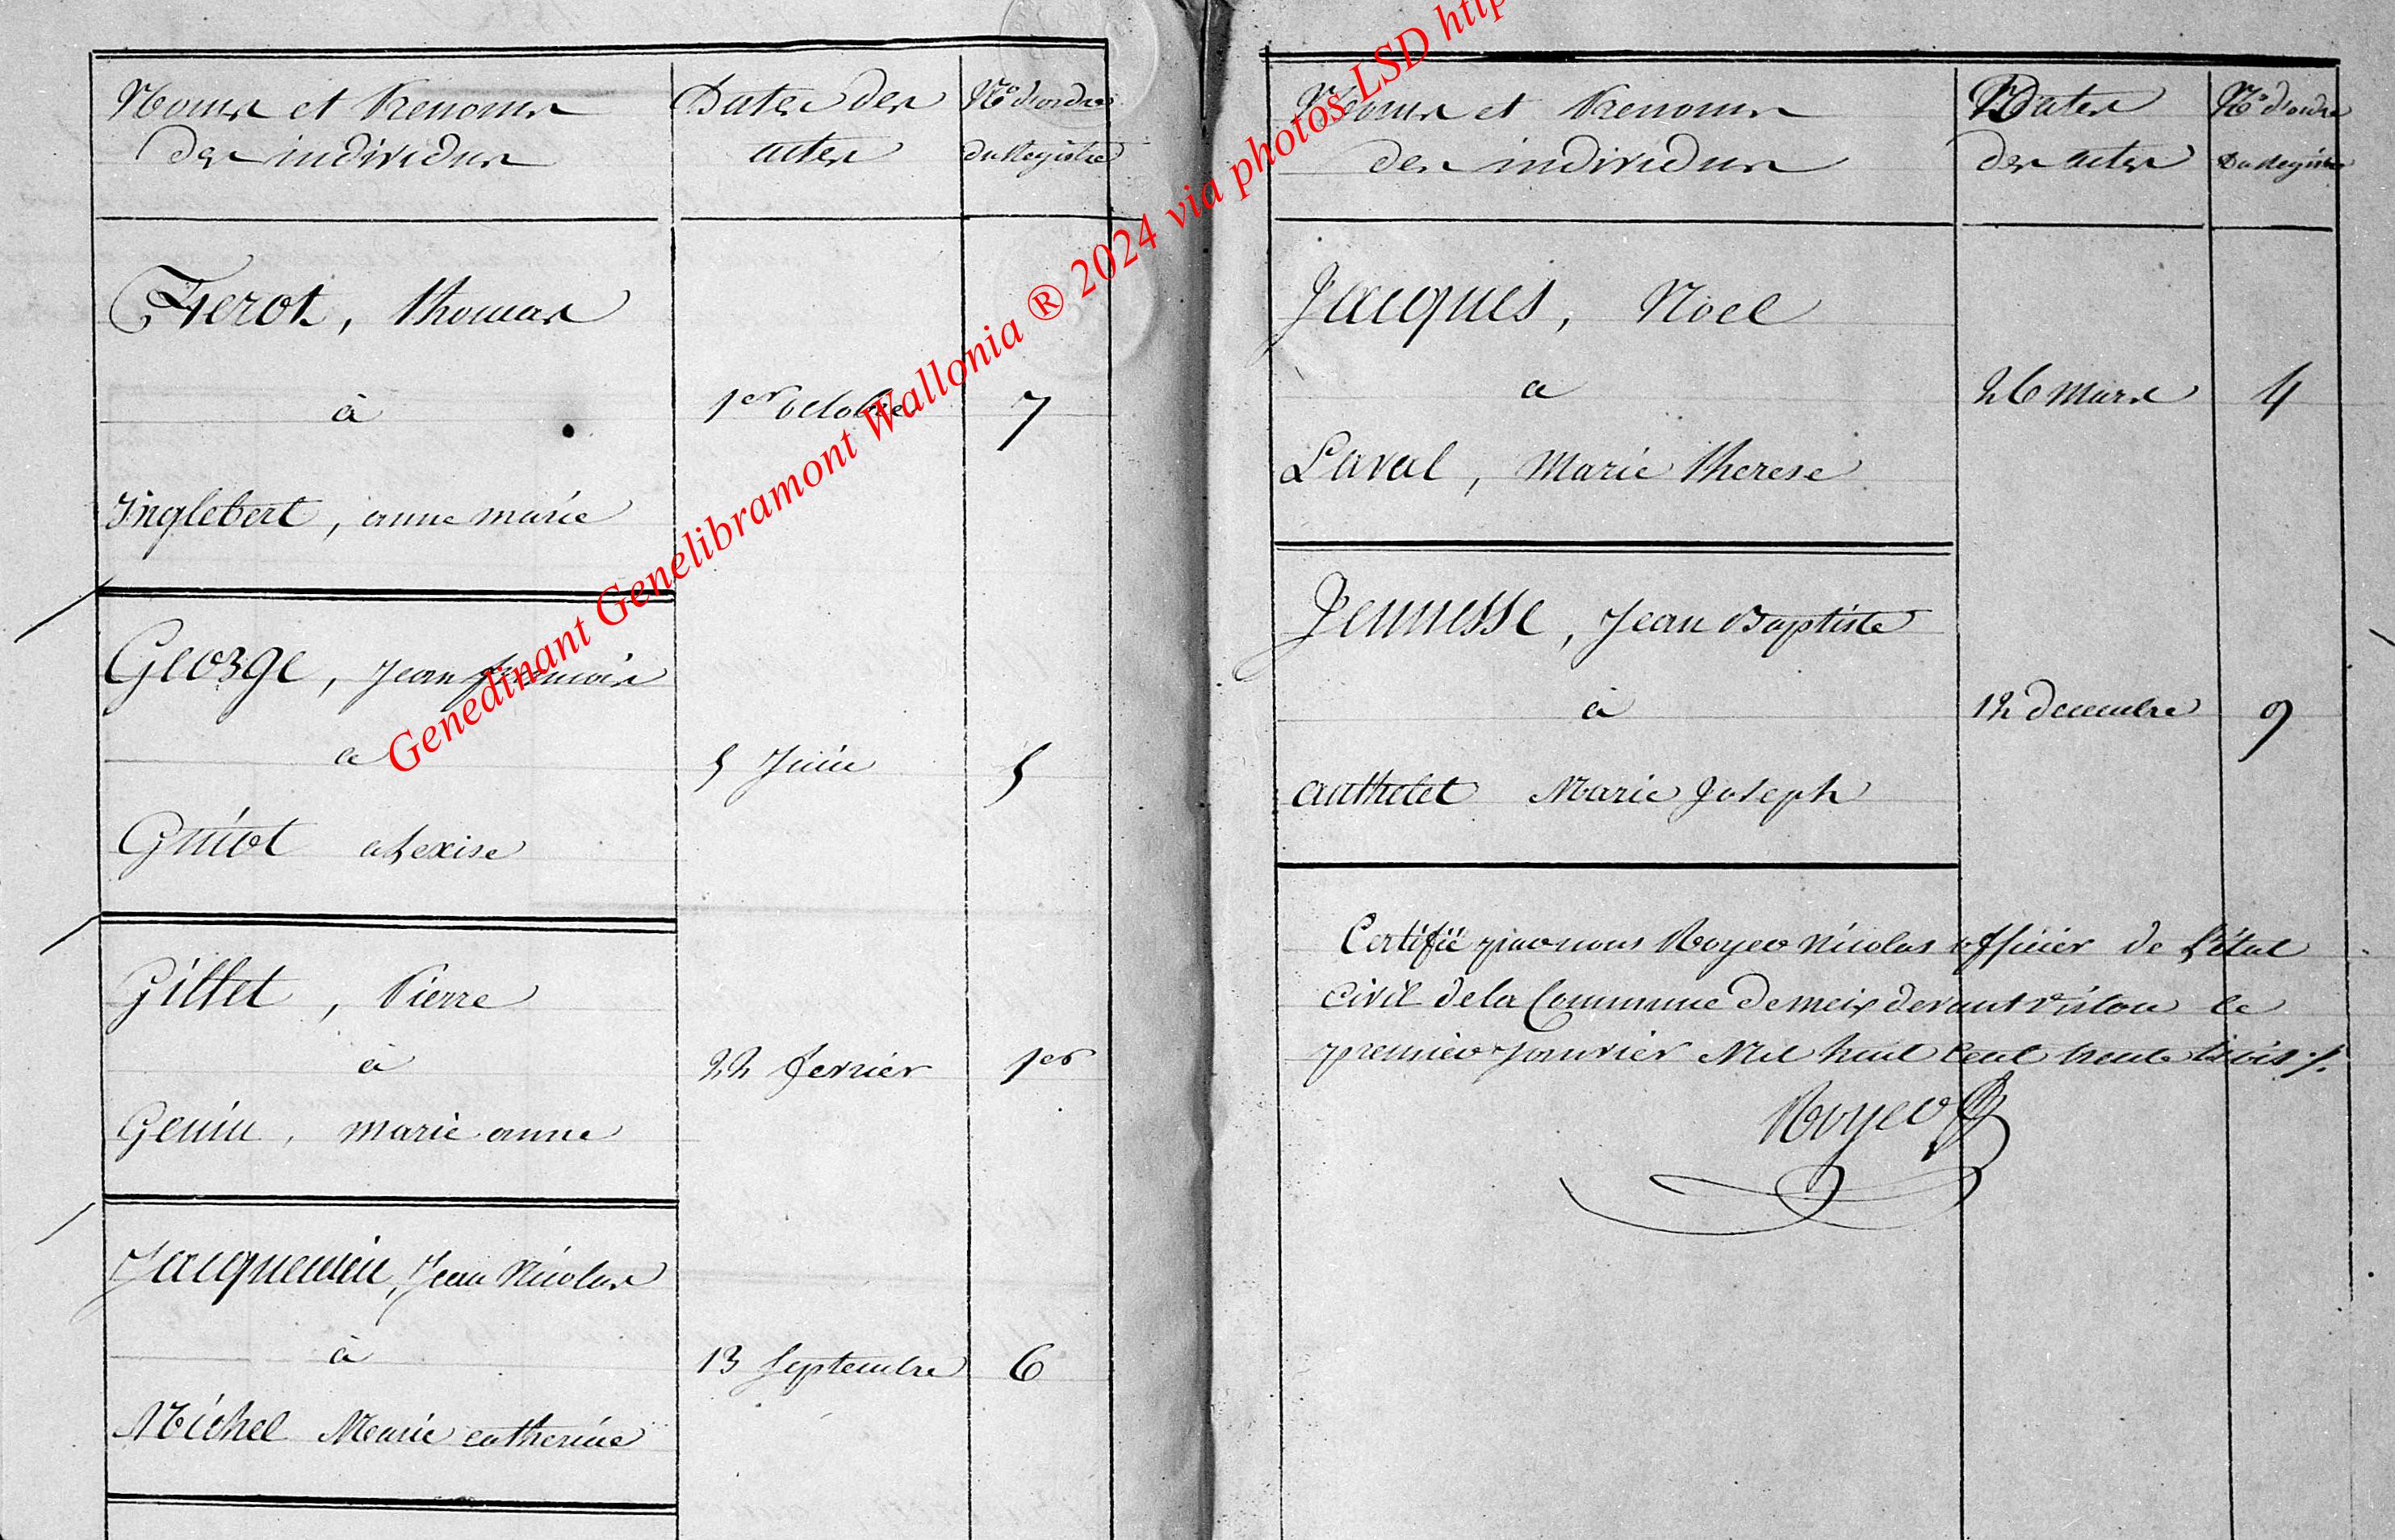 Noms et Prenoms
des individus
Dates des
actes
N° d'ordre
du Registre
Ferot, thomas
à
1er octobre
7
Inglebert, anne marie
George, Jean francois
a
5 Juin
5
Guiot alexise
Gillet, Pierre
à
22 fevrier
1er
Genin, marie anne
Jacquemin, Jean Nicolas
à
13 septembre
6
Michel Marie catherine
Noms et Prenoms
des individus
Dates
des actes
N° d'ordre
Du Registre
Jacques, Noel
a
26 Mars
4
Laval, Marie therese
Jeunesse, Jean Baptiste
à
12 decembre
9
authelet Marie Joseph
Certifié par nous Royer Nicolas officier de l'état
civil de la Commune de meix devant virton le
premier Janvier Mil huit Cent trente trois ./.
Royer
Genedinant Genelibramont Wallonia ® 2024 via photos LSD http